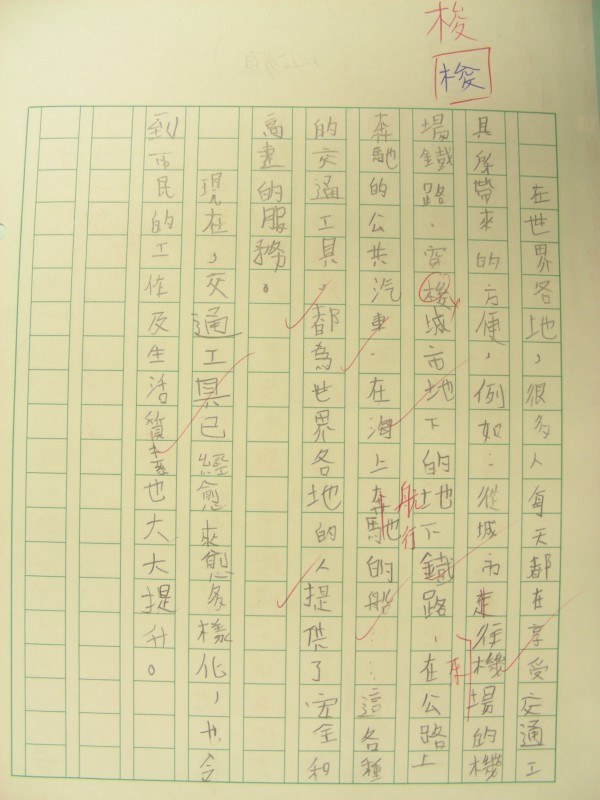 梭
梭
在世界各地，很多人每天都在享受交通工
具所帶來的方便，例如：從城市走往機場的機
場鐵路．穿梭城市地下的地下鐵路，在公路上
奔馳的公共汽車．在海上奔馳的船……這各種
航行
的交通工具，都為世界各地的人提供了安全和
高速的服務。
現在，交通工具已經愈來愈多樣化，也令
到市民的工作及生活質素也大大提升。